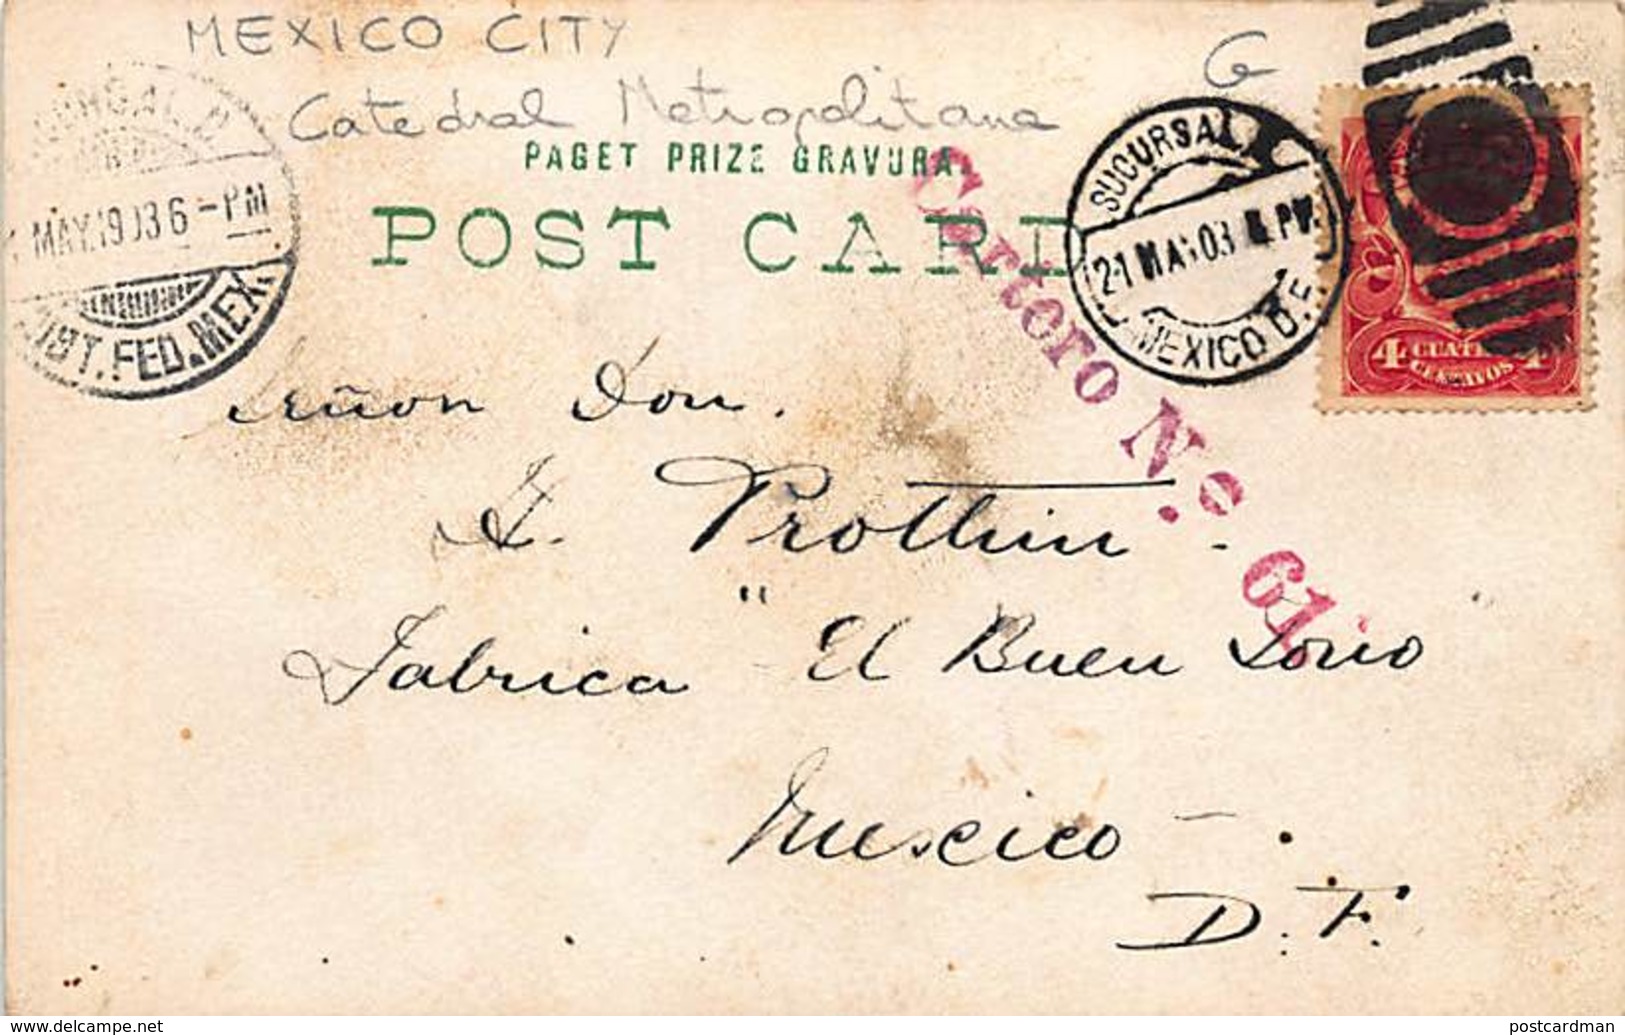 MEXICO CITY
G
Catedral Metropolitana
PAGET PRIZE GRAVURA
POST CARD
MAY.19 03 6-PM
DIST. FED. MEX.
SUCURSAL
21 MAY 03 PM.
MEXICO D.F.
4 CUATRO 4
CENTAVOS
Cartero No. 61
Señor Don.
Prothin
Fabrica "El Buen Tono
Mexico
D. F.
www.delcampe.net
postcardman